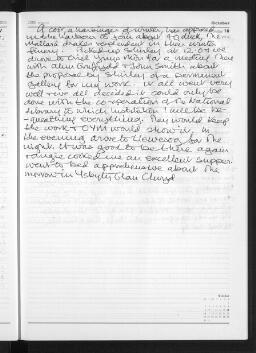 October
18
A cosy, a harbinger of winter, has appeared
in the harbour to join about 40 duck, the
Mallard drakes resplendent in their winter
finery. Picked up Shirley at 12.00 we
drove to Oriel Ynys Môn for a meeting there
with Alun Gruffydd & John Smith about
the proposal by Shirley of a permanent
gallery for my work. It all went very
well & we all decided it could only be
done with the co-operation of the National
Library to which institution I will be be-
-queathing everything. They would keep
the work & OYM would show it. In
the evening drove to Llewesog for the
night. It was good to be there again
& Angie cooked me an excellent supper.
Went to bed apprehensive about the
morrow in Ysbyty Glan Clwyd